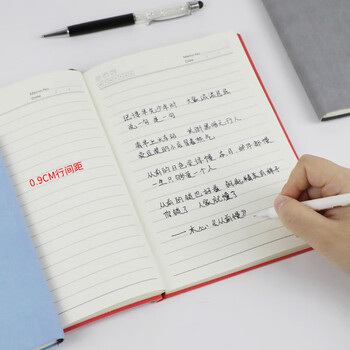 0.9CM行间距
记得早先少年时 大家诚诚恳恳
说一句 是一句
清早上火车站 长街黑暗无行人
卖豆浆的小店冒着热气
从前的日色变得慢 车、马、邮件都慢
一生只够爱一个人
从前的锁也好看 钥匙精美有样子
你锁了 人家就懂了
——木心《从前慢》